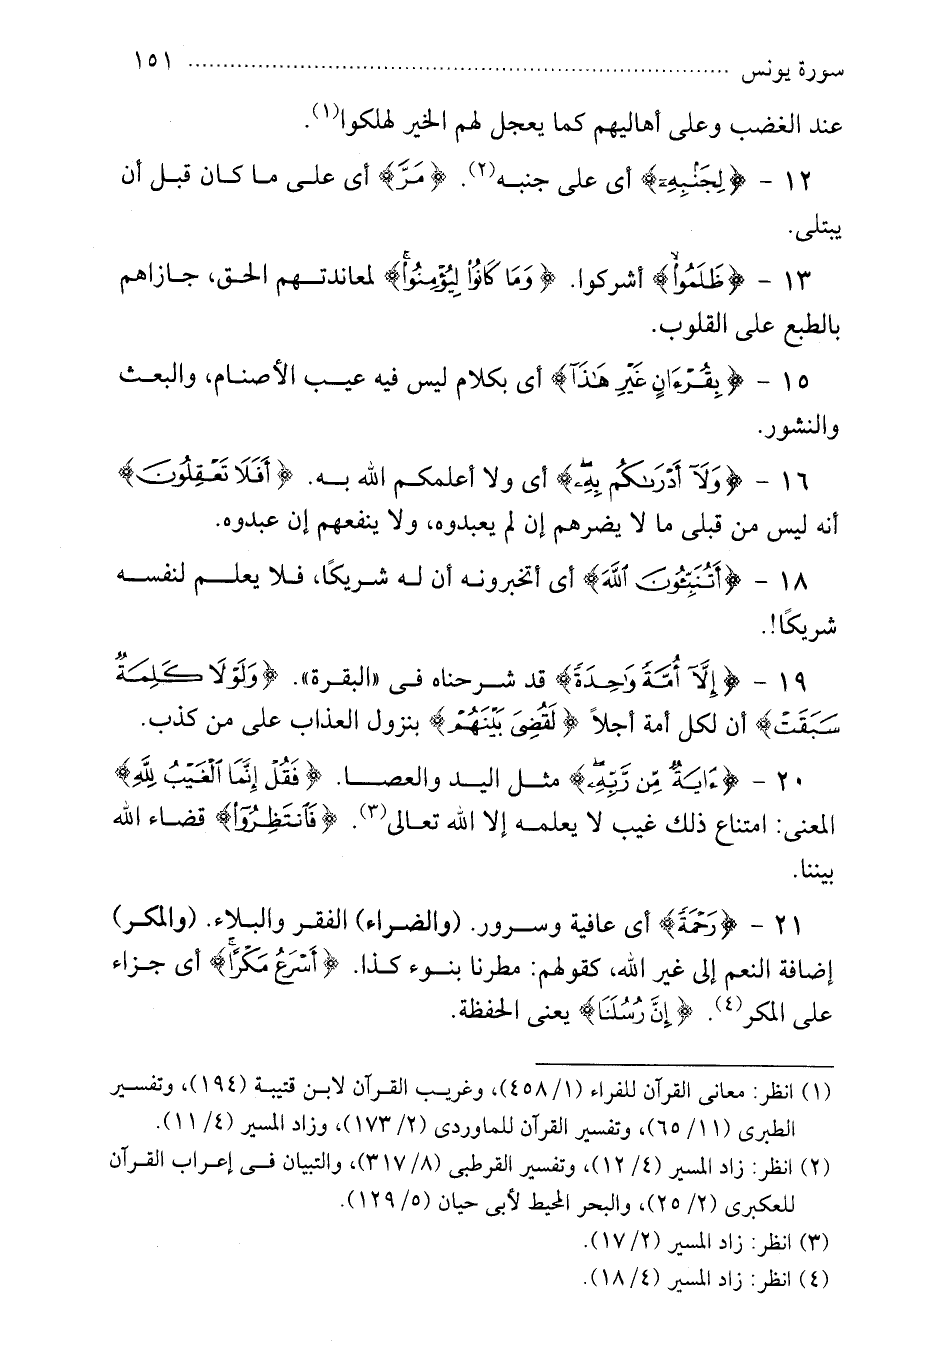 سورة يونس ........................................................ ١٥١
عند الغضب وعلى أهاليهم كما يعجل لهم الخير لهلكوا(١).
١٢ - ﴿لِجَنۢبِهِۦٓ﴾ أى على جنبه(٢). ﴿مَرَّ﴾ أى على ما كان قبل أن
يبتلى.
١٣ - ﴿ظَلَمُواْۙ﴾ أشركوا. ﴿وَمَا كَانُواْ لِيُؤْمِنُواْۚ﴾ لمعاندتهم الحق، جازاهم
بالطبع على القلوب.
١٥ - ﴿بِقُرْءَانٍ غَيْرِ هَٰذَآ﴾ أى بكلام ليس فيه عيب الأصنام، والبعث
والنشور.
١٦ - ﴿وَلَآ أَدْرَىٰكُم بِهِۦۖ﴾ أى ولا أعلمكم الله به. ﴿أَفَلَا تَعْقِلُونَ﴾
أنه ليس من قبلى ما لا يضرهم إن لم يعبدوه، ولا ينفعهم إن عبدوه.
١٨ - ﴿أَتُنَبِّـُٔونَ ٱللَّهَ﴾ أى أتخبرونه أن له شريكًا، فلا يعلم لنفسه
شريكًا!.
١٩ - ﴿إِلَّآ أُمَّةً وَٰحِدَةً﴾ قد شرحناه فى «البقرة». ﴿وَلَوْلَا كَلِمَةٌ
سَبَقَتْ﴾ أن لكل أمة أجلاً ﴿لَقُضِىَ بَيْنَهُمْ﴾ بنزول العذاب على من كذب.
٢٠ - ﴿ءَايَةٌ مِّن رَّبِّهِۦۖ﴾ مثل اليد والعصا. ﴿فَقُلْ إِنَّمَا ٱلْغَيْبُ لِلَّهِ﴾
المعنى: امتناع ذلك غيب لا يعلمه إلا الله تعالى(٣). ﴿فَٱنتَظِرُوٓاْ﴾ قضاء الله
بيننا.
٢١ - ﴿رَحْمَةً﴾ أى عافية وسرور. (والضراء) الفقر والبلاء. (والمكر)
إضافة النعم إلى غير الله، كقولهم: مطرنا بنوء كذا. ﴿أَسْرَعُ مَكْرًاۚ﴾ أى جزاء
على المكر(٤). ﴿إِنَّ رُسُلَنَا﴾ يعنى الحفظة.
(١) انظر: معانى القرآن للفراء (١/ ٤٥٨)، وغريب القرآن لابن قتيبة (١٩٤)، وتفسير
الطبرى (١١/ ٦٥)، وتفسير القرآن للماوردى (٢/ ١٧٣)، وزاد المسير (٤/ ١١).
(٢) انظر: زاد المسير (٤/ ١٢)، وتفسير القرطبى (٨/ ٣١٧)، والتبيان فى إعراب القرآن
للعكبرى (٢/ ٢٥)، والبحر المحيط لأبى حيان (٥/ ١٢٩).
(٣) انظر: زاد المسير (٢/ ١٧).
(٤) انظر: زاد المسير (٤/ ١٨).